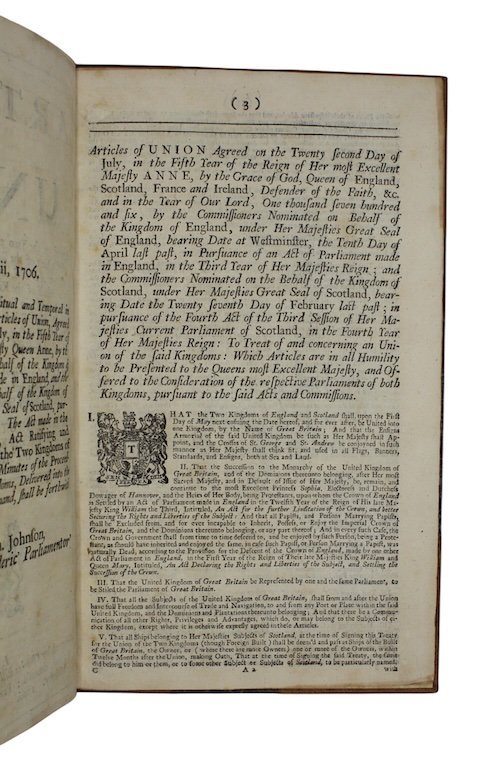 ii, 1706.
itual and Temporal in
rticles of Union, Agreed
ly, in the Fifth Year of
sty Queen Anne, by the
half of the Kingdom of
de in England, and the
half of the Kingdom of
Seal of Scotland, pur-
The Act made in the
Act Ratifying and
the Two Kingdoms of
Minutes of the Proceed
ioms, Delivered into the
mand, shall be forthwith
. Johnson,
leric' Parliamentor'
( 3 )
Articles of UNION Agreed on the Twenty ſecond Day of
July, in the Fifth Year of the Reign of Her moſt Excellent
Majeſty ANNE, by the Grace of God, Queen of England,
Scotland, France and Ireland, Defender of the Faith, &c.
and in the Year of Our Lord, One thouſand ſeven hundred
and ſix, by the Commiſſioners Nominated on Behalf of
the Kingdom of England, under Her Majeſties Great Seal
of England, bearing Date at Weſtminſter, the Tenth Day of
April laſt paſt, in Purſuance of an Act of Parliament made
in England, in the Third Year of Her Majeſties Reign ; and
the Commiſſioners Nominated on the Behalf of the Kingdom of
Scotland, under Her Majeſties Great Seal of Scotland, bear-
ing Date the Twenty ſeventh Day of February laſt paſt ; in
purſuance of the Fourth Act of the Third Seſſion of Her Ma-
jeſties Current Parliament of Scotland, in the Fourth Year
of Her Majeſties Reign : To Treat of and concerning an Uni-
on of the ſaid Kingdoms : Which Articles are in all Humility
to be Preſented to the Queens moſt Excellent Majeſty, and Of-
fered to the Conſideration of the reſpective Parliaments of both
Kingdoms, purſuant to the ſaid Acts and Commiſſions.
I. T HAT the Two Kingdoms of England and Scotland ſhall, upon the Firſt
Day of May next enſuing the Date hereof, and for ever after, be United into
one Kingdom, by the Name of Great Britain ; And that the Enſigns
Armorial of the ſaid United Kingdom be ſuch as Her Majeſty ſhall Ap-
point, and the Croſſes of St. George and St. Andrew be conjoined in ſuch
manner as Her Majeſty ſhall think fit, and uſed in all Flags, Banners,
Standards, and Enſigns, both at Sea and Land.
II. That the Succeſſion to the Monarchy of the United Kingdom of
Great Britain, and of the Dominions thereunto belonging, after Her moſt
Sacred Majeſty, and in Default of Iſſue of Her Majeſty, be, remain, and
continue to the moſt Excellent Princeſs Sophia, Electoreſs and Dutcheſs
Dowager of Hannover, and the Heirs of Her Body, being Proteſtants, upon whom the Crown of England
is Settled by an Act of Parliament made in England in the Twelfth Year of the Reign of His late Ma-
jeſty King William the Third, Intituled, An Act for the further Limitation of the Crown, and better
Securing the Rights and Liberties of the Subject : And that all Papiſts, and Perſons Marrying Papiſts,
ſhall be Excluded from, and for ever incapable to Inherit, Poſſeſs, or Enjoy the Imperial Crown of
Great Britain, and the Dominions thereunto belonging, or any part thereof ; And in every ſuch Caſe, the
Crown and Government ſhall from time to time deſcend to, and be enjoyed by ſuch Perſon, being a Prote-
ſtant, as ſhould have inherited and enjoyed the ſame, in caſe ſuch Papiſt, or Perſon Marrying a Papiſt, was
Naturally Dead, according to the Proviſion for the Deſcent of the Crown of England, made by one other
Act of Parliament in England, in the Firſt Year of the Reign of Their late Majeſties King William and
Queen Mary, Intituled, An Act Declaring the Rights and Liberties of the Subject, and Settling the
Succeſſion of the Crown.
III. That the United Kingdom of Great Britain be Repreſented by one and the ſame Parliament, to
be Stiled, the Parliament of Great Britain.
IV. That all the Subjects of the United Kingdom of Great Britain, ſhall from and after the Union
have full Freedom and Intercourſe of Trade and Navigation, to and from any Port or Place within the ſaid
United Kingdom, and the Dominions and Plantations thereunto belonging ; And that there be a Commu-
nication of all other Rights, Privileges and Advantages, which do, or may belong to the Subjects of ei-
ther Kingdom, except where it is otherwiſe expreſly agreed in theſe Articles.
V. That all Ships belonging to Her Majeſties Subjects of Scotland, at the time of Signing this Treaty
for the Union of the Two Kingdoms (though Foreign Built) ſhall be deem'd and paſs as Ships of the Built
of Great Britain, the Owner, or (where there are more Owners) one or more of the Owners, within
Twelve Months after the Union, making Oath, That at the time of Signing the ſaid Treaty, the ſame
did belong to him or them, or to ſome other Subject or Subjects of Scotland, to be particularly named,
C A 2 with